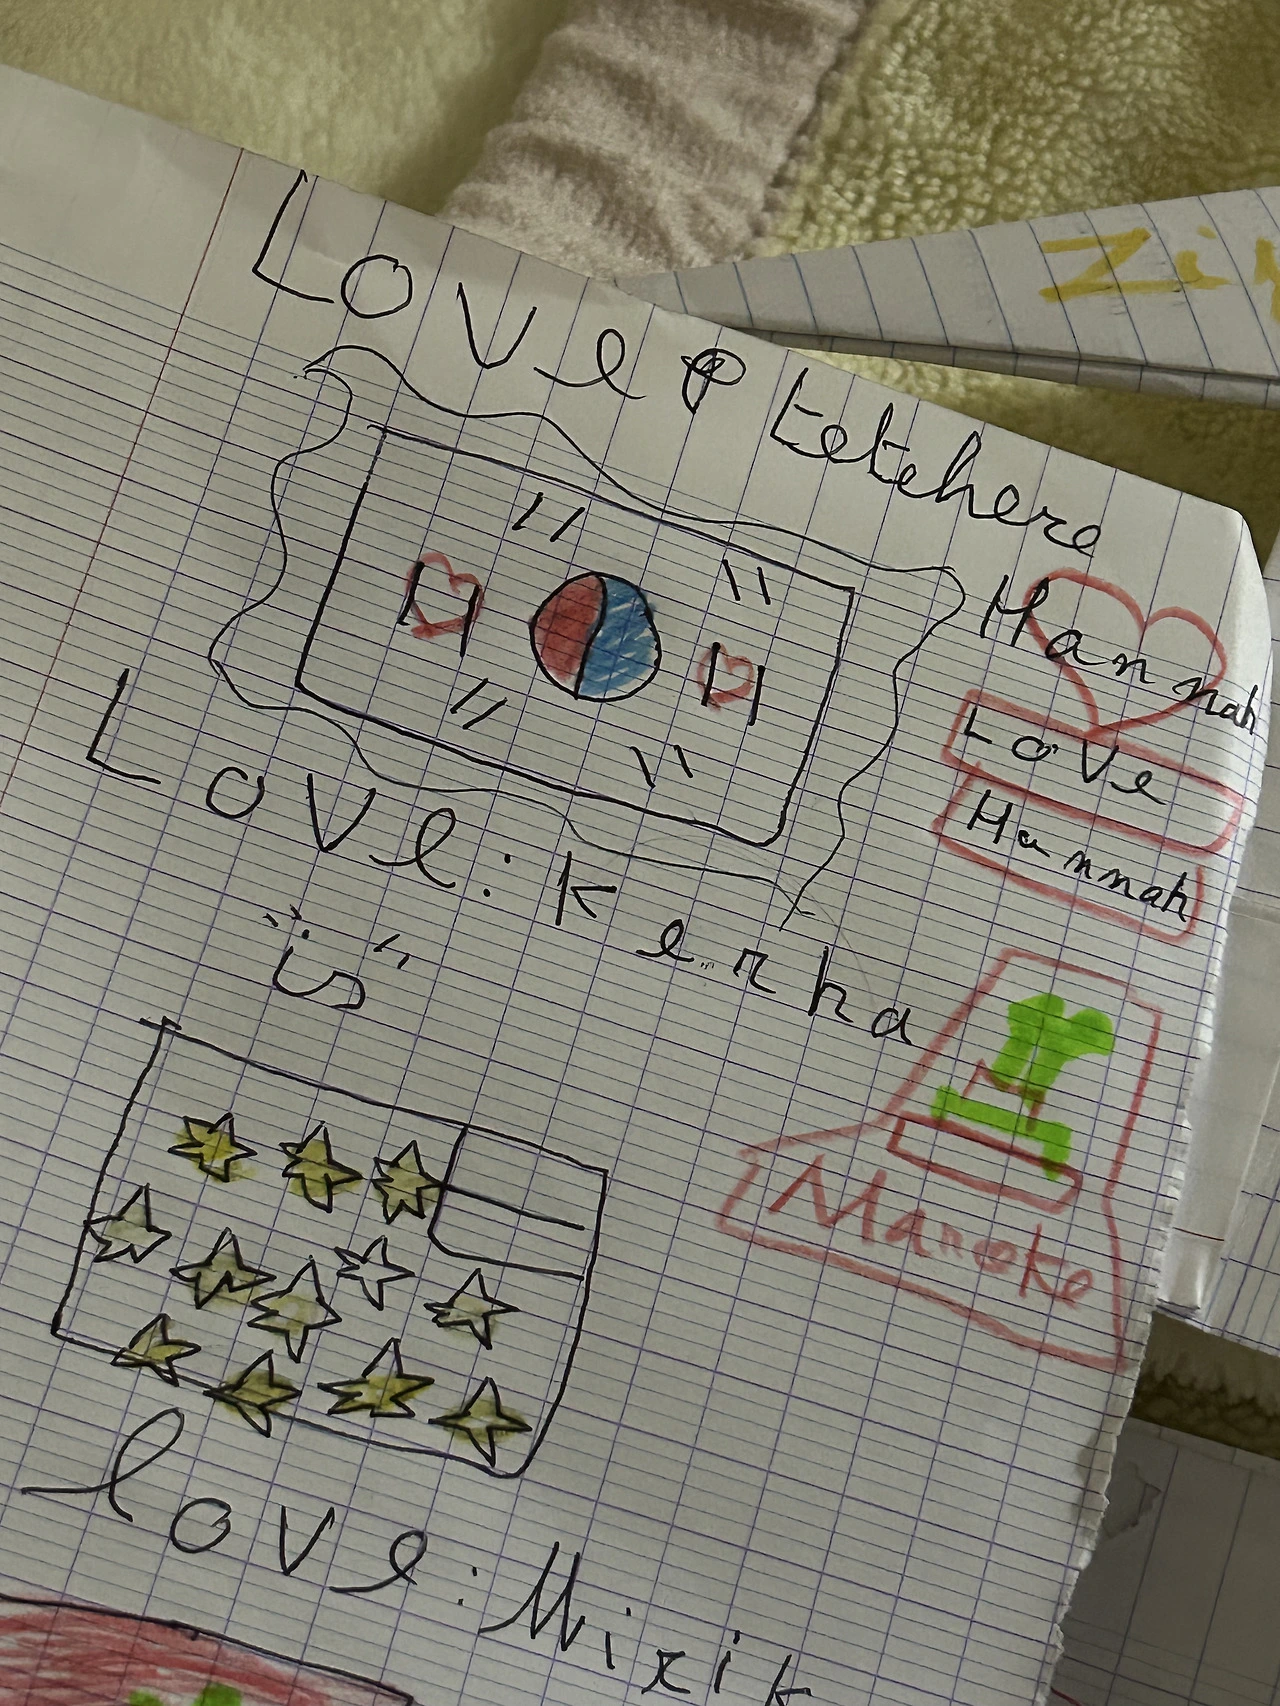 Love tetehere
Zi
Hannah
Love
Hannah
Love: Kerha
Maroke
love: Mirik